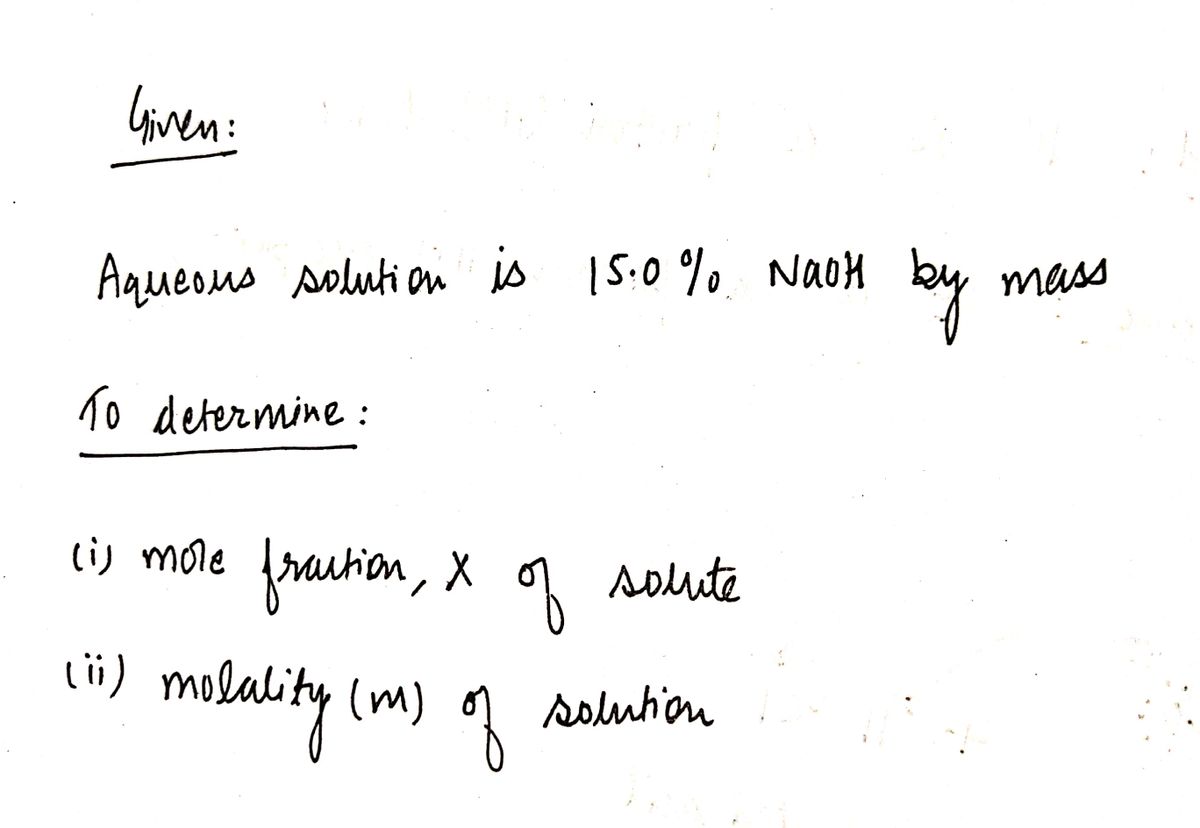 Given:
Aqueous solution is 15.0% NaOH by mass
To determine:
(i) mole fraction, X of solute
(ii) molality (m) of solution